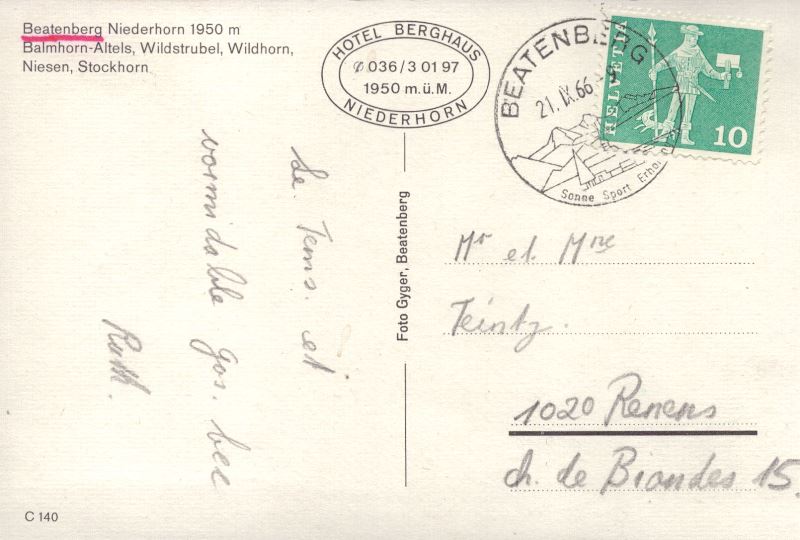 Beatenberg Niederhorn 1950 m
Balmhorn-Altels, Wildstrubel, Wildhorn,
Niesen, Stockhorn
HOTEL BERGHAUS
✆ 036/3 01 97
1950 m.ü.M.
NIEDERHORN
BEATENBERG
21.IX.66
Sonne Sport
HELVETIA
10
Le. Tems. et
vormidable Gos. bec
Ruth.
Foto Gyger, Beatenberg
Mr et. Mme
Teintz.
1020 Renens
ch. de Biondes 15.
C 140